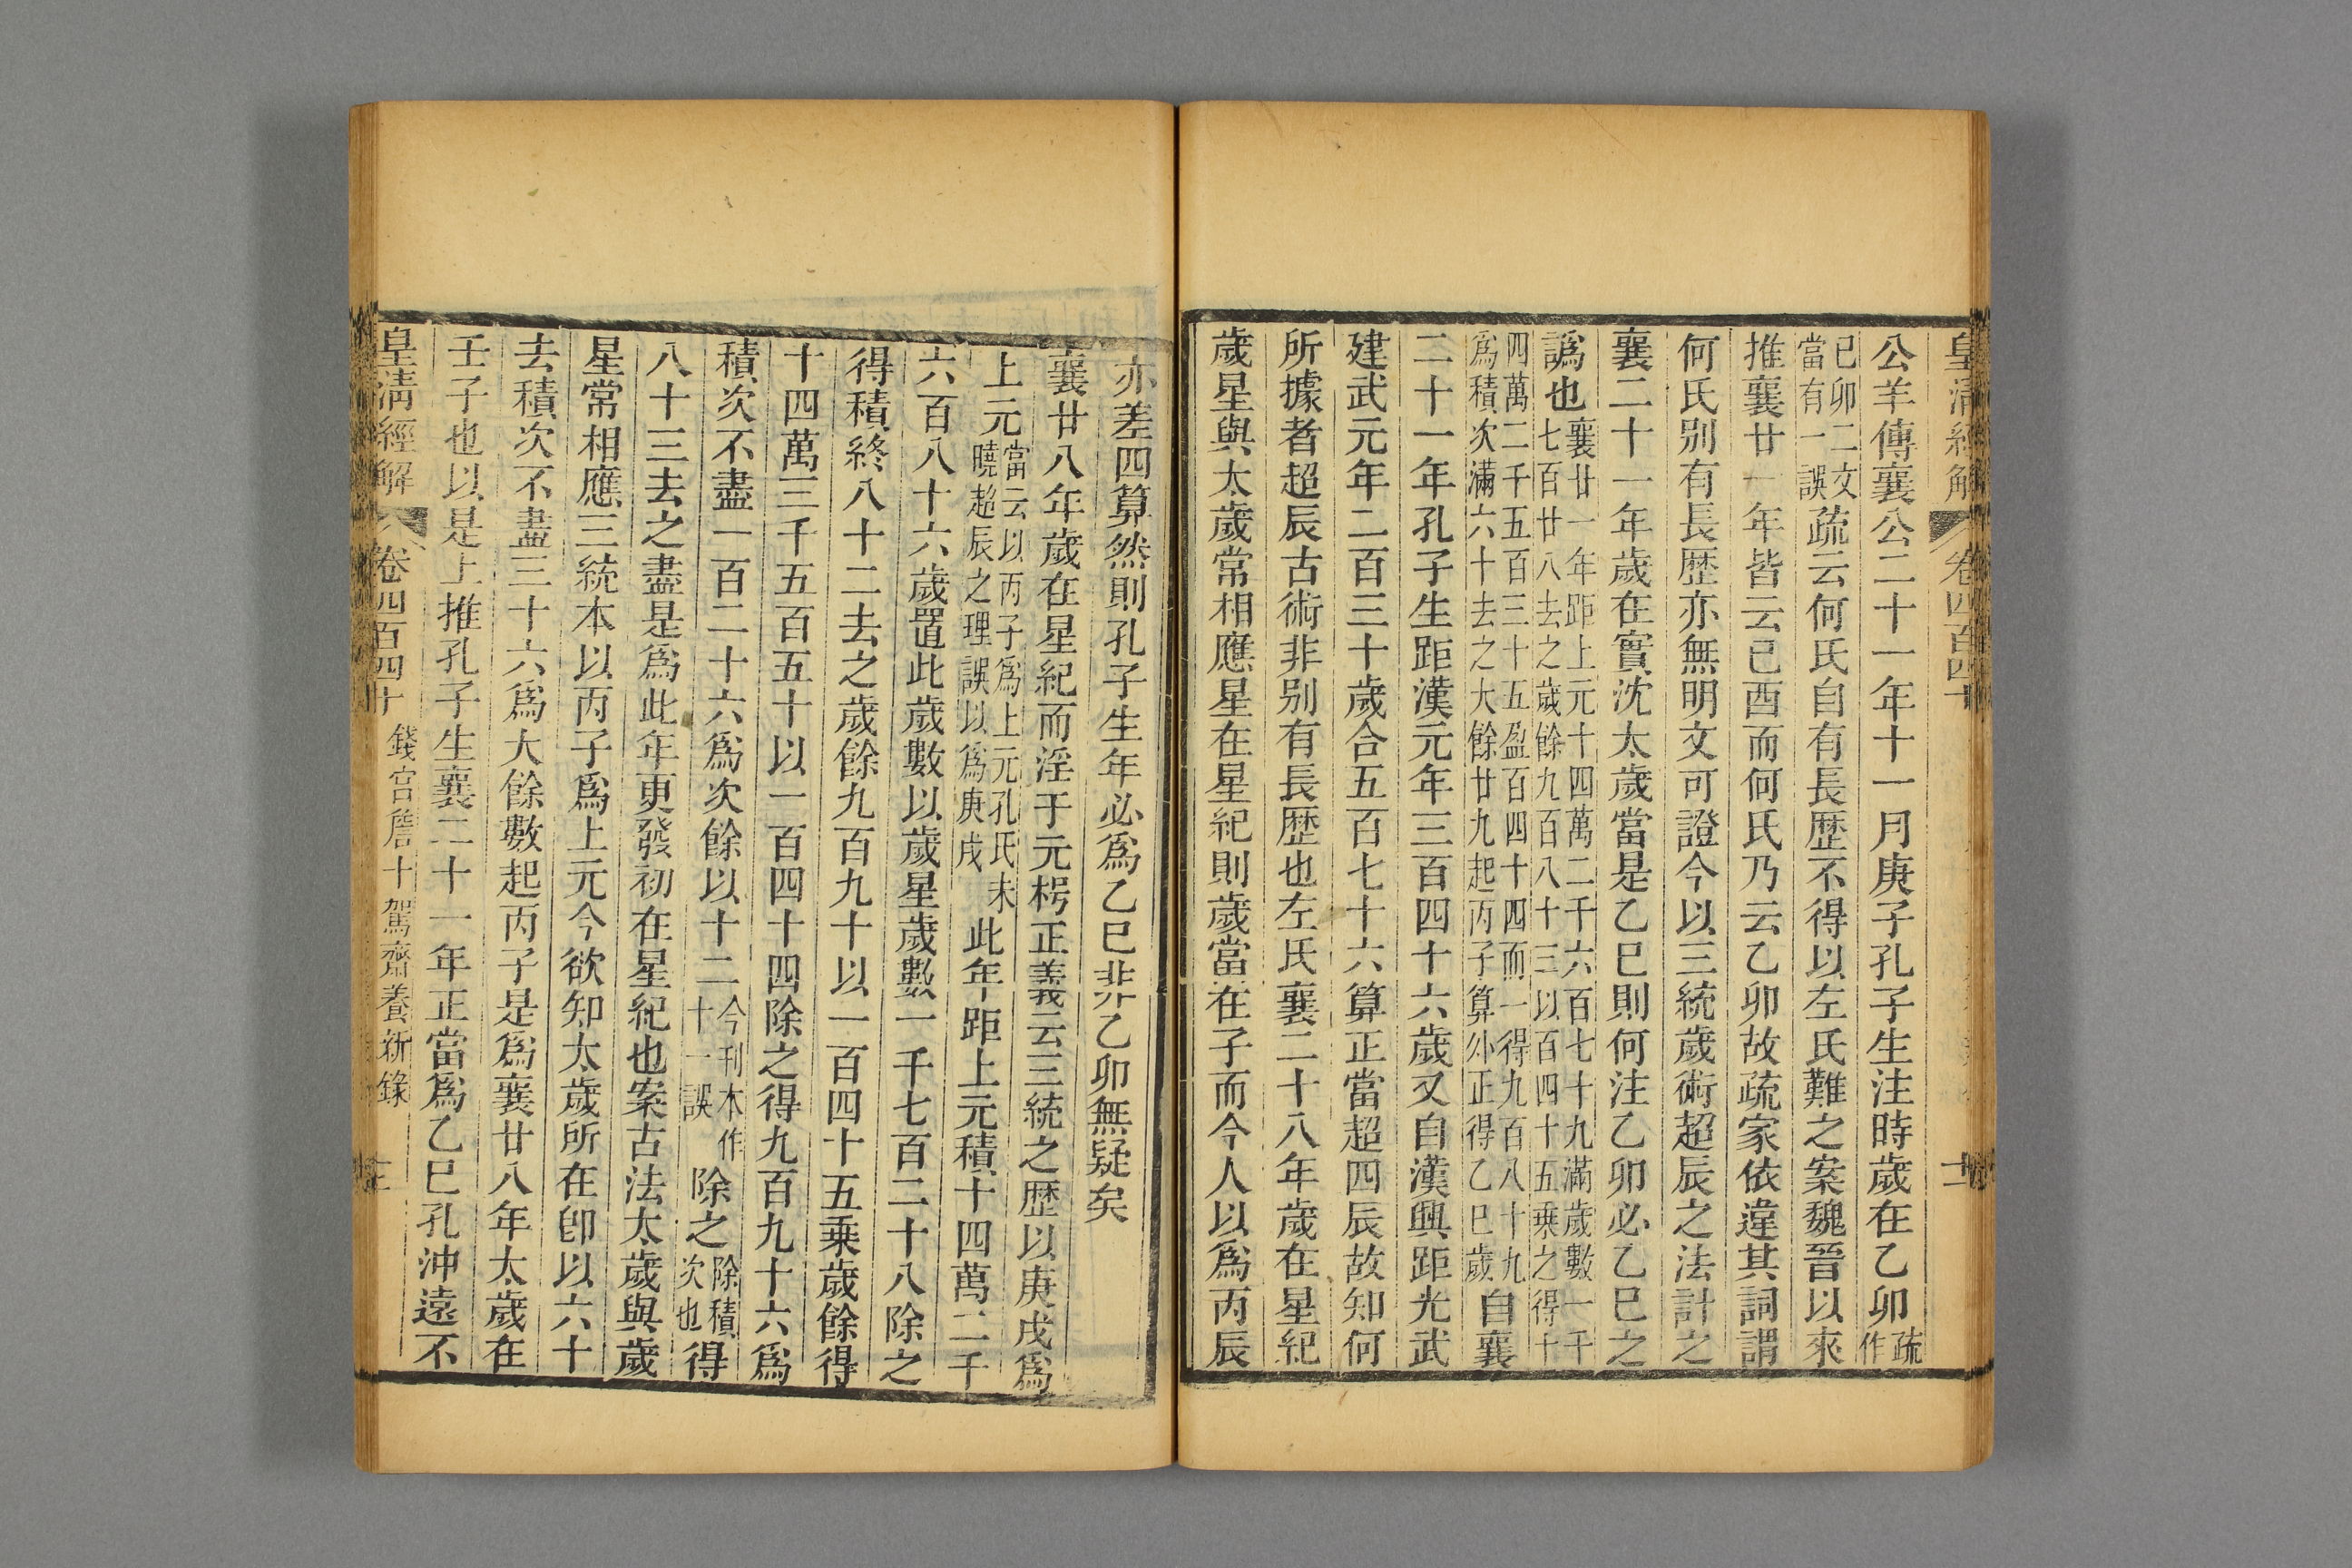 皇清經解 卷四百四十 十二
公羊傳襄公二十一年十一月庚子孔子生注時歲在乙卯疏作
已卯二文當有一誤疏云何氏自有長歷不得以左氏難之案魏晉以來
推襄廿一年皆云已酉而何氏乃云乙卯故疏家依違其詞謂
何氏別有長歷亦無明文可證今以三統歲術超辰之法計之
襄二十一年歲在實沈太歲當是乙巳則何注乙卯必乙巳之
譌也襄廿一年距上元十四萬二千六百七十九滿歲數一千七百廿八去之歲餘九百八十三以百四十五乘之得十
四萬二千五百三十五盈百四十四而一得九百八十九爲積次滿六十去之大餘廿九起丙子算外正得乙巳歲自襄
二十一年孔子生距漢元年三百四十六歲又自漢興距光武
建武元年二百三十歲合五百七十六算正當超四辰故知何
所據者超辰古術非別有長歷也左氏襄二十八年歲在星紀
歲星與太歲常相應星在星紀則歲當在子而今人以爲丙辰
亦差四算然則孔子生年必爲乙巳非乙卯無疑矣
襄廿八年歲在星紀而淫于元枵正義云三統之歷以庚戌爲
上元當云以丙子爲上元孔氏未曉超辰之理誤以爲庚戌此年距上元積十四萬二千
六百八十六歲置此歲數以歲星歲數一千七百二十八除之
得積終八十二去之歲餘九百九十以一百四十五乘歲餘得
十四萬三千五百五十以一百四十四除之得九百九十六爲
積次不盡一百二十六爲次餘以十二今刊本作十一誤除之除積次也得
八十三去之盡是爲此年更發初在星紀也案古法太歲與歲
星常相應三統本以丙子爲上元今欲知太歲所在卽以六十
去積次不盡三十六爲大餘數起丙子是爲襄廿八年太歲在
壬子也以是上推孔子生襄二十一年正當爲乙巳孔沖遠不
皇清經解 卷四百四十 錢宮詹十駕齋養新錄